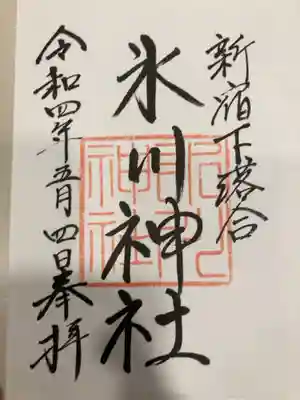 新宿下落合
氷川神社
令和四年五月四日奉拝